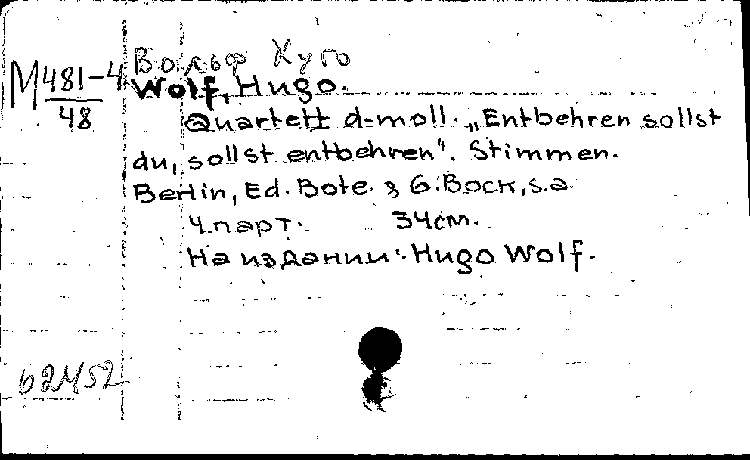 Вольф Хуго
М 481-4
48
Wolf, Hugo.
Quartett d-moll. „Entbehren sollst
du, sollst entbehren". Stimmen.
Berlin, Ed. Bote & G. Bock, s.a.
4 парт. 34 см.
На издании: Hugo Wolf.